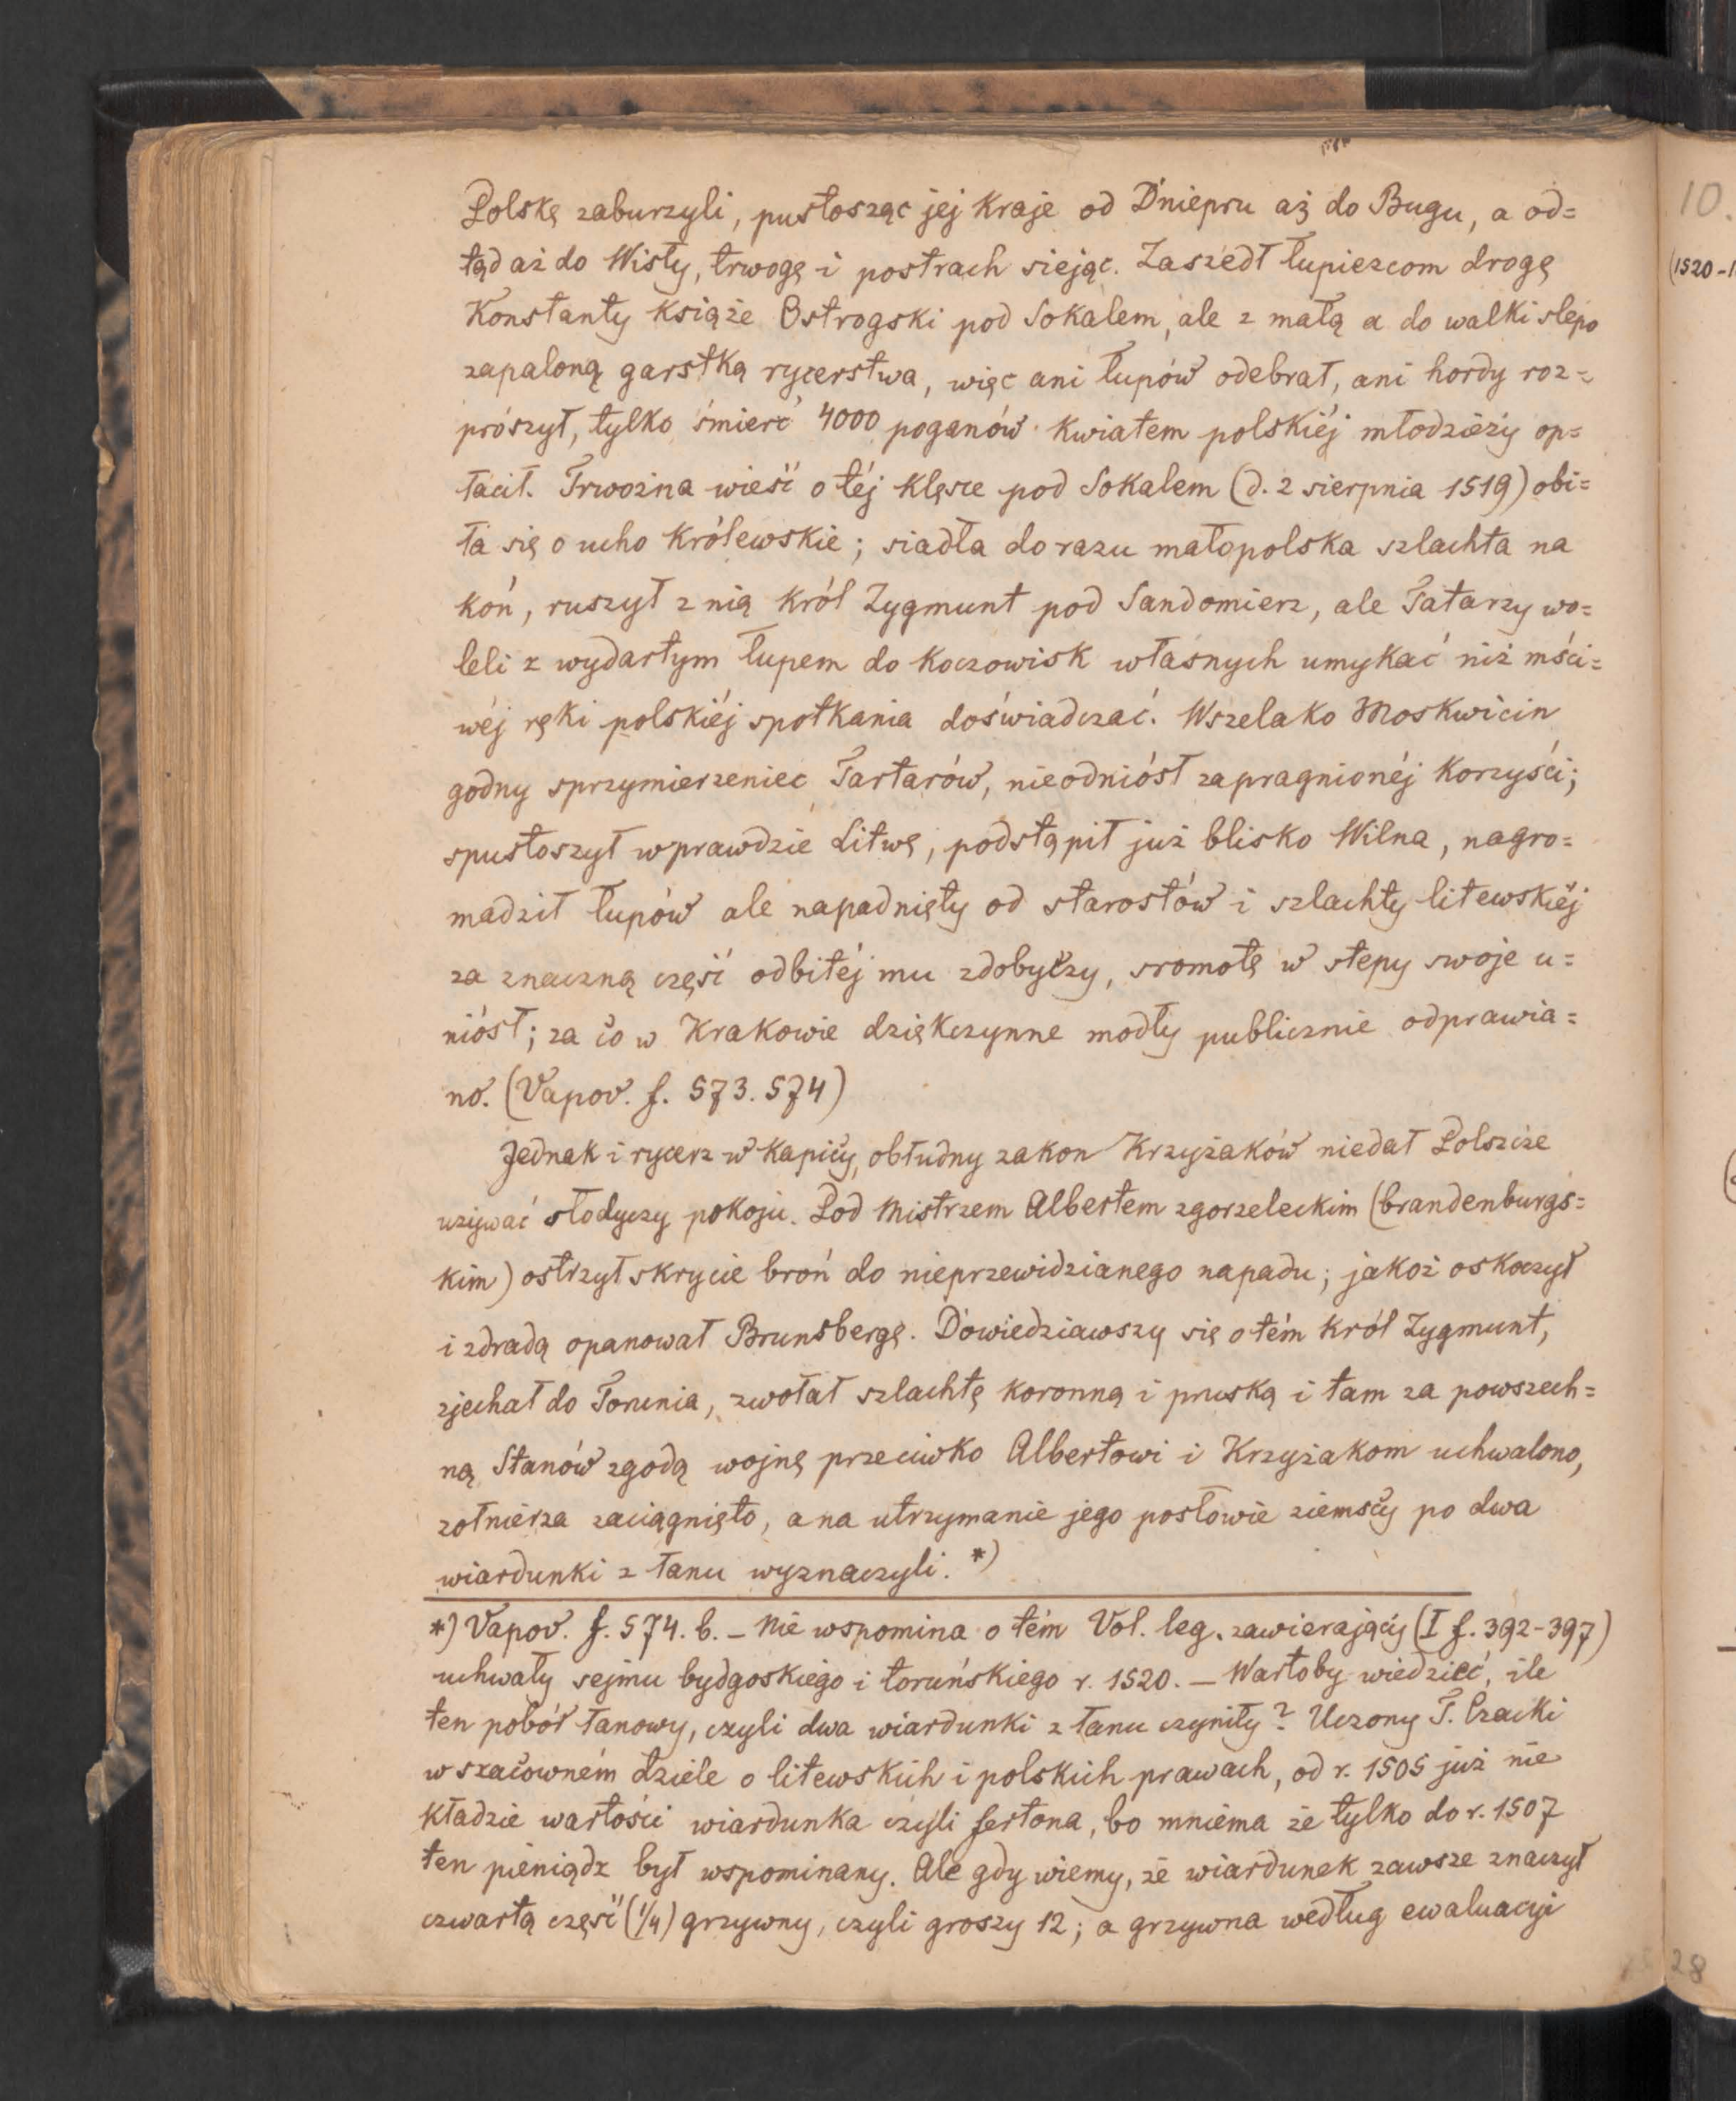 Polskę zaburzyli, pustosząc jej kraje od Dniepru aż do Bugu, a od=
tąd aż do Wisły, trwogę i postrach siejąc. Zaszedł łupiezcom drogę
Konstanty książe Ostrogski pod Sokalem, ale z małą a do walki slepo
zapaloną garstką rycerstwa, więc ani łupów odebrał, ani hordy roz=
prószył, tylko śmierć 4000 poganów kwiatem polskiéj młodzieży op=
łacił. Trwożna wieść o téj klęsce pod Sokalem (d. 2 sierpnia 1519) obi=
ła się o ucho królewskie; siadła do razu małopolska szlachta na
koń, ruszył z nią król Zygmunt pod Sandomierz, ale Tatarzy wo=
leli z wydartym łupem do koczowisk własnych umykać niż mści=
wéj ręki polskiéj spotkania doświadczać. Wszelako Moskwicin
godny sprzymierzeniec Tartarów, nieodniósł zapragnionéj korzyści;
spustoszył wprawdzie Litwę, podstąpił już blisko Wilna, nagro=
madził łupów ale napadnięty od starostów i szlachty litewskiéj
za znaczną część odbitéj mu zdobyczy, sromotę w stepy swoje u=
niósł; za co w Krakowie dziękczynne modły publicznie odprawia=
no. (Vapov. f. 573. 574)
Jednak i rycerz w kapicy, obłudny zakon Krzyżaków niedał Polszcze
używać słodyczy pokoju. Pod Mistrzem Albertem zgorzeleckim (brandenburgs=
kim) ostrzył skrycie broń do nieprzewidzianego napadu; jakoż oskoczył
i zdradą opanował Brunsbergę. Dowiedziawszy się o tém król Zygmunt,
zjechał do Torunia, zwołał szlachtę koronną i pruską i tam za powszech=
ną Stanów zgodą wojnę przeciwko Albertowi i Krzyżakom uchwalono,
żołnierza zaciągnięto, a na utrzymanie jego posłowie ziemscy po dwa
wiardunki z łanu wyznaczyli. *)
*) Vapov. f. 574. b. – Nie wspomina o tém Vol. leg. zawierający (I f. 392-397)
uchwały sejmu bydgoskiego i toruńskiego r. 1520. – Wartoby wiedzieć, ile
ten pobór łanowy, czyli dwa wiardunki z łanu czyniły? Uczony T. Czacki
w szacowném dziele o litewskich i polskich prawach, od r. 1505 już nie
kładzie wartości wiardunka czyli fertona, bo mniema że tylko do r. 1507
ten pieniądz był wspominany. Ale gdy wiemy, że wiardunek zawsze znaczył
czwartą część (1/4) grzywny, czyli groszy 12; a grzywna według ewaluacyi
10.
(1520-1
28